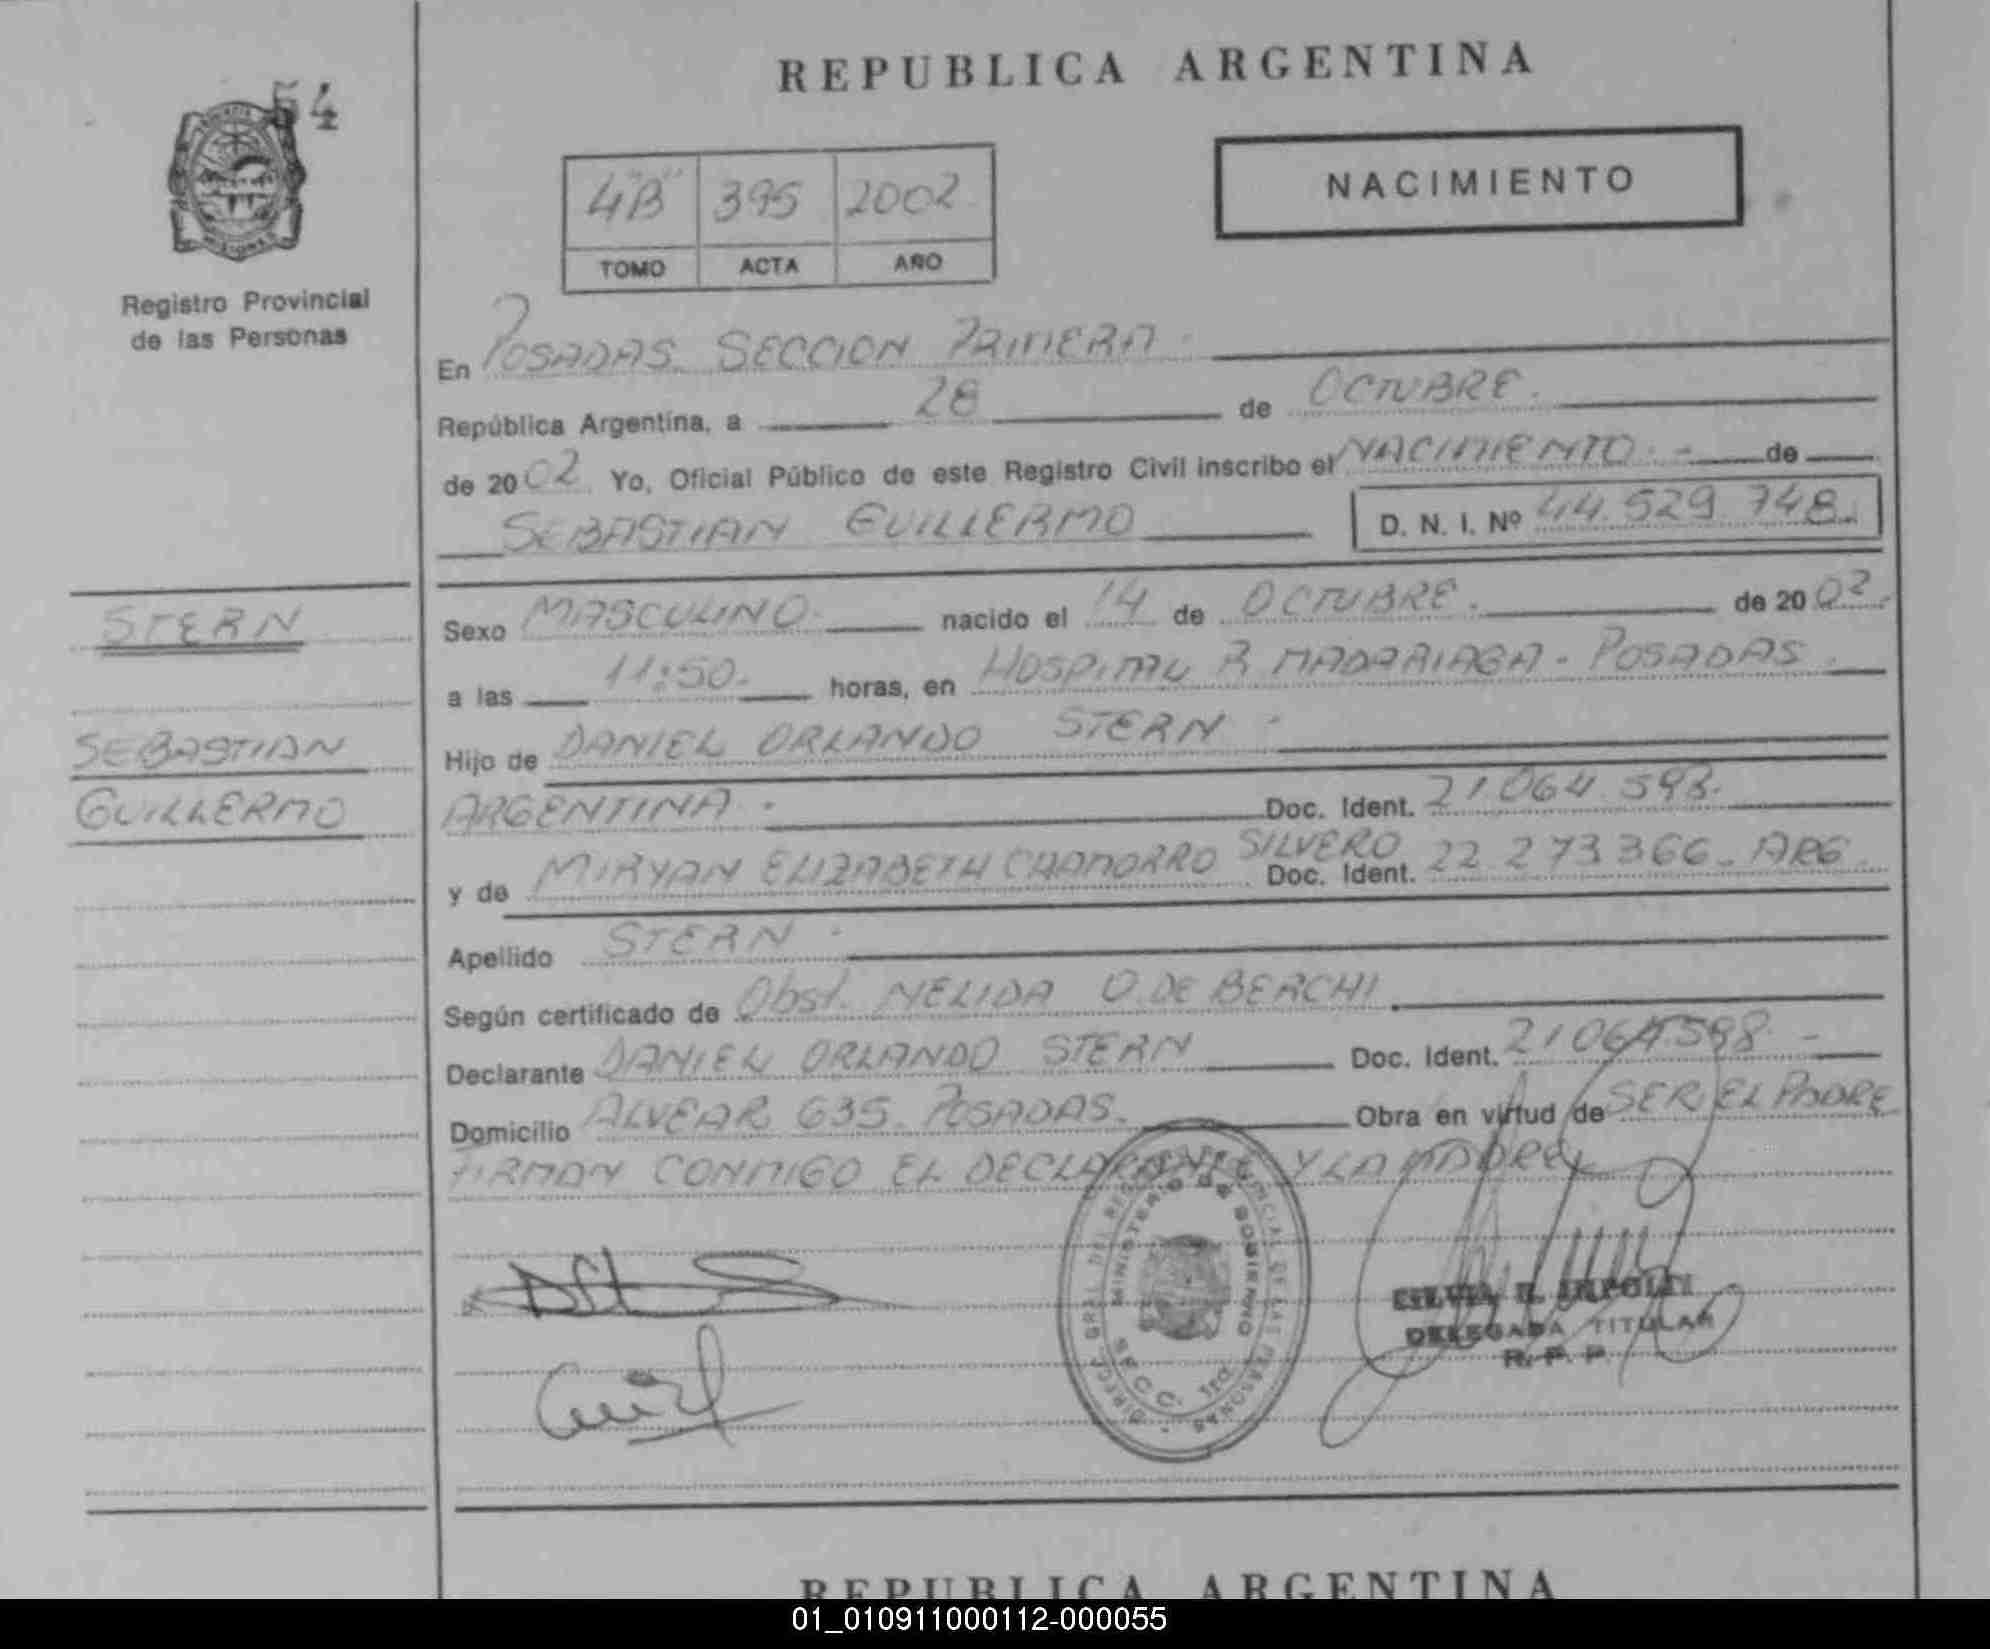 REPUBLICA ARGENTINA
54
NACIMIENTO
4"B" 395 2002
TOMO ACTA AÑO
Registro Provincial
de las Personas
En POSADAS. SECCION PRIMERA.
República Argentina, a 28 de OCTUBRE.
de 2002. Yo, Oficial Público de este Registro Civil inscribo el NACIMIENTO.- de
SEBASTIAN GUILLERMO D. N. I. Nº 44.529.748.
STERN
Sexo MASCULINO. nacido el 14 de OCTUBRE. de 2002.
a las 11:50. horas, en HOSPITAL R MADARIAGA - POSADAS.
SEBASTIAN
Hijo de DANIEL ORLANDO STERN.
GUILLERMO
ARGENTINA. Doc. Ident. 21.064.598.
y de MIRYAN ELIZABETH CHAMORRO SILVERO Doc. Ident. 22.273.366. ARG.
Apellido STERN.
Según certificado de Obst. NELIDA O. DE BERCHI.
Declarante DANIEL ORLANDO STERN Doc. Ident. 21064598. -
Domicilio ALVEAR 635. POSADAS. Obra en virtud de SER EL PADRE
FIRMAN CONMIGO EL DECLARANTE Y LA MADRE
MINISTERIO DE GOBIERNO
SECC. 1ra.
DELEGADA TITULAR
R. P. P.
REPUBLICA ARGENTINA
01_010911000112-000055